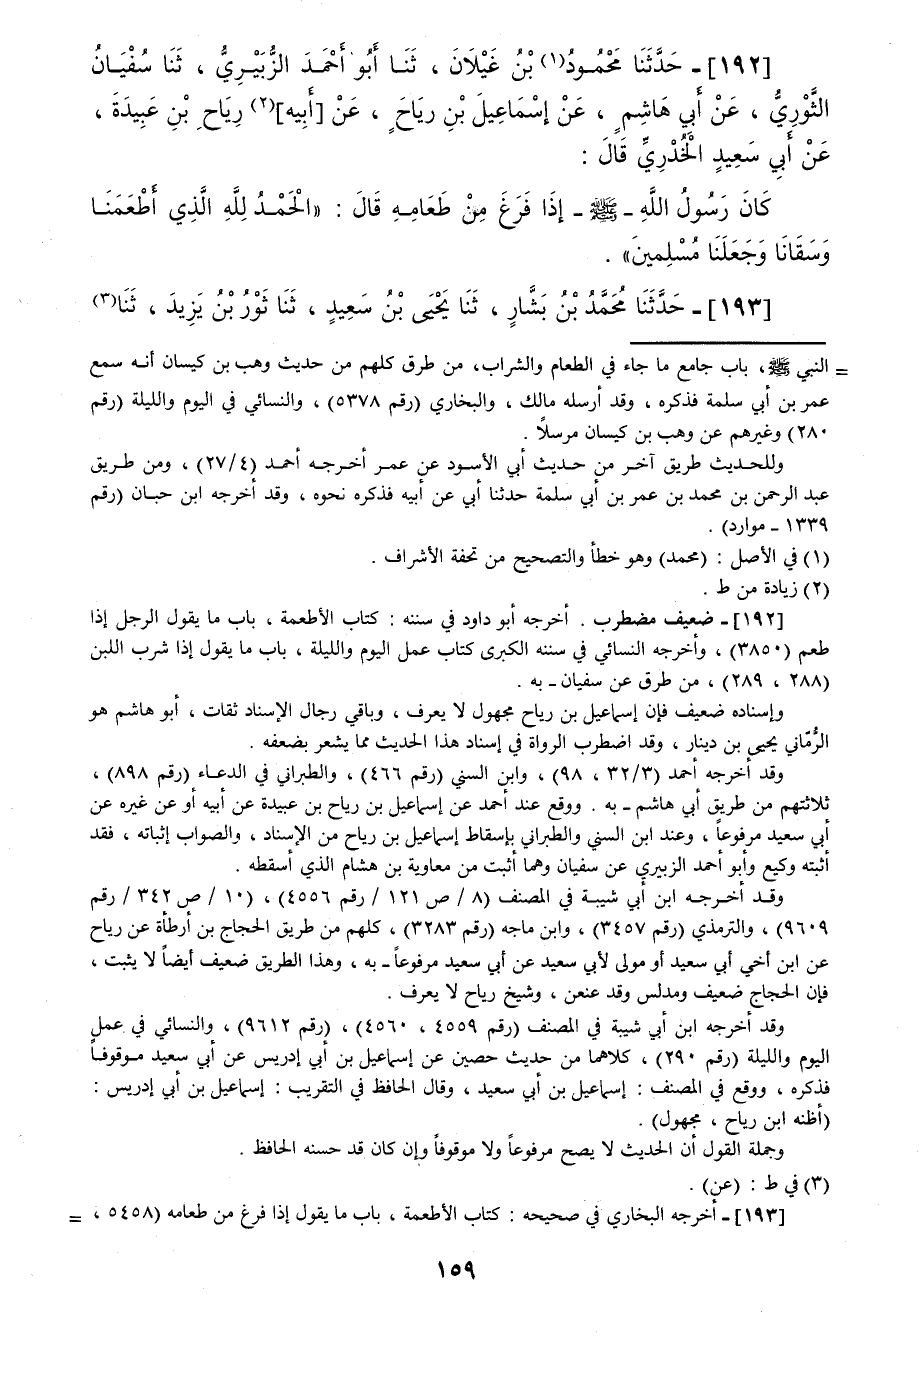 [١٩٢] ـ حَدَّثَنَا مَحْمُودُ(١) بْنُ غَيْلَانَ ، ثَنَا أَبُو أَحْمَدَ الزُّبَيْرِيُّ ، ثَنَا سُفْيَانُ
الثَّوْرِيُّ ، عَنْ أَبِي هَاشِمٍ ، عَنْ إِسْمَاعِيلَ بْنِ رِيَاحٍ ، عَنْ [أَبِيهِ](٢) رِيَاحِ بْنِ عَبِيدَةَ ،
عَنْ أَبِي سَعِيدٍ الْخُدْرِيِّ قَالَ :
كَانَ رَسُولُ اللَّهِ ـ ﷺ ـ إِذَا فَرَغَ مِنْ طَعَامِهِ قَالَ : «الْحَمْدُ لِلَّهِ الَّذِي أَطْعَمَنَا
وَسَقَانَا وَجَعَلَنَا مُسْلِمِينَ» .
[١٩٣] ـ حَدَّثَنَا مُحَمَّدُ بْنُ بَشَّارٍ ، ثَنَا يَحْيَى بْنُ سَعِيدٍ ، ثَنَا ثَوْرُ بْنُ يَزِيدَ ، ثَنَا(٣)
= النبي ﷺ، باب جامع ما جاء في الطعام والشراب، من طرق كلهم من حديث وهب بن كيسان أنه سمع
عمر بن أبي سلمة فذكره ، وقد أرسله مالك ، والبخاري (رقم ٥٣٧٨) ، والنسائي في اليوم والليلة (رقم
٢٨٠) وغيرهم عن وهب بن كيسان مرسلاً .
وللحديث طريق آخر من حديث أبي الأسود عن عمر أخرجه أحمد (٢٧/٤) ، ومن طريق
عبد الرحمن بن محمد بن عمر بن أبي سلمة حدثنا أبي عن أبيه فذكره نحوه ، وقد أخرجه ابن حبان (رقم
١٣٣٩ ـ موارد) .
(١) في الأصل : (محمد) وهو خطأ والتصحيح من تحفة الأشراف .
(٢) زيادة من ط .
[١٩٢] ـ ضعيف مضطرب . أخرجه أبو داود في سننه : كتاب الأطعمة ، باب ما يقول الرجل إذا
طعم (٣٨٥٠) ، وأخرجه النسائي في سننه الكبرى كتاب عمل اليوم والليلة ، باب ما يقول إذا شرب اللبن
(٢٨٨ ، ٢٨٩) ، من طرق عن سفيان ـ به .
وإسناده ضعيف فإن إسماعيل بن رياح مجهول لا يعرف ، وباقي رجال الإسناد ثقات ، أبو هاشم هو
الرُّمّاني يحيى بن دينار ، وقد اضطرب الرواة في إسناد هذا الحديث مما يشعر بضعفه .
وقد أخرجه أحمد (٣٢/٣ ، ٩٨) ، وابن السني (رقم ٤٦٦) ، والطبراني في الدعاء (رقم ٨٩٨) ،
ثلاثتهم من طريق أبي هاشم ـ به . ووقع عند أحمد عن إسماعيل بن رياح بن عبيدة عن أبيه أو عن غيره عن
أبي سعيد مرفوعاً ، وعند ابن السني والطبراني بإسقاط إسماعيل بن رياح من الإسناد ، والصواب إثباته ، فقد
أثبته وكيع وأبو أحمد الزبيري عن سفيان وهما أثبت من معاوية بن هشام الذي أسقطه .
وقد أخرجه ابن أبي شيبة في المصنف (٨ / ص ١٢١ / رقم ٤٥٥٦) ، (١٠ / ص ٣٤٢ / رقم
٩٦٠٩) ، والترمذي (رقم ٣٤٥٧) ، وابن ماجه (رقم ٣٢٨٣) ، كلهم من طريق الحجاج بن أرطأة عن رياح
عن ابن أخي أبي سعيد أو مولى لأبي سعيد عن أبي سعيد مرفوعاً ـ به ، وهذا الطريق ضعيف أيضاً لا يثبت ،
فإن الحجاج ضعيف ومدلس وقد عنعن ، وشيخ رياح لا يعرف .
وقد أخرجه ابن أبي شيبة في المصنف (رقم ٤٥٥٩ ، ٤٥٦٠) ، (رقم ٩٦١٢) ، والنسائي في عمل
اليوم والليلة (رقم ٢٩٠) ، كلاهما من حديث حصين عن إسماعيل بن أبي إدريس عن أبي سعيد موقوفاً
فذكره ، ووقع في المصنف : إسماعيل بن أبي سعيد ، وقال الحافظ في التقريب : إسماعيل بن أبي إدريس :
(أظنه ابن رياح ، مجهول) .
وجملة القول أن الحديث لا يصح مرفوعاً ولا موقوفاً وإن كان قد حسنه الحافظ .
(٣) في ط : (عن) .
[١٩٣] ـ أخرجه البخاري في صحيحه : كتاب الأطعمة ، باب ما يقول إذا فرغ من طعامه (٥٤٥٨ ، =
١٥٩